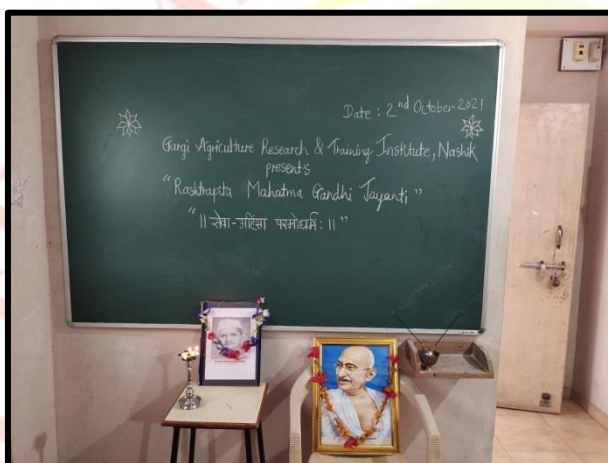 Date : 2nd October 2021
Gargi Agriculture Research & Training Institute, Nashik
presents
"Rashtrapita Mahatma Gandhi Jayanti"
"॥ सेवा-अहिंसा परमोधर्म: ॥"